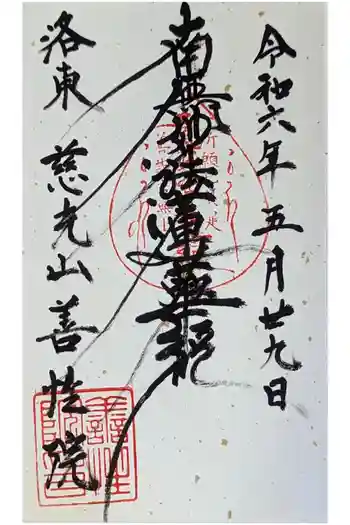 令和六年五月廿九日
南無妙法蓮華経
洛東 慈光山善性院